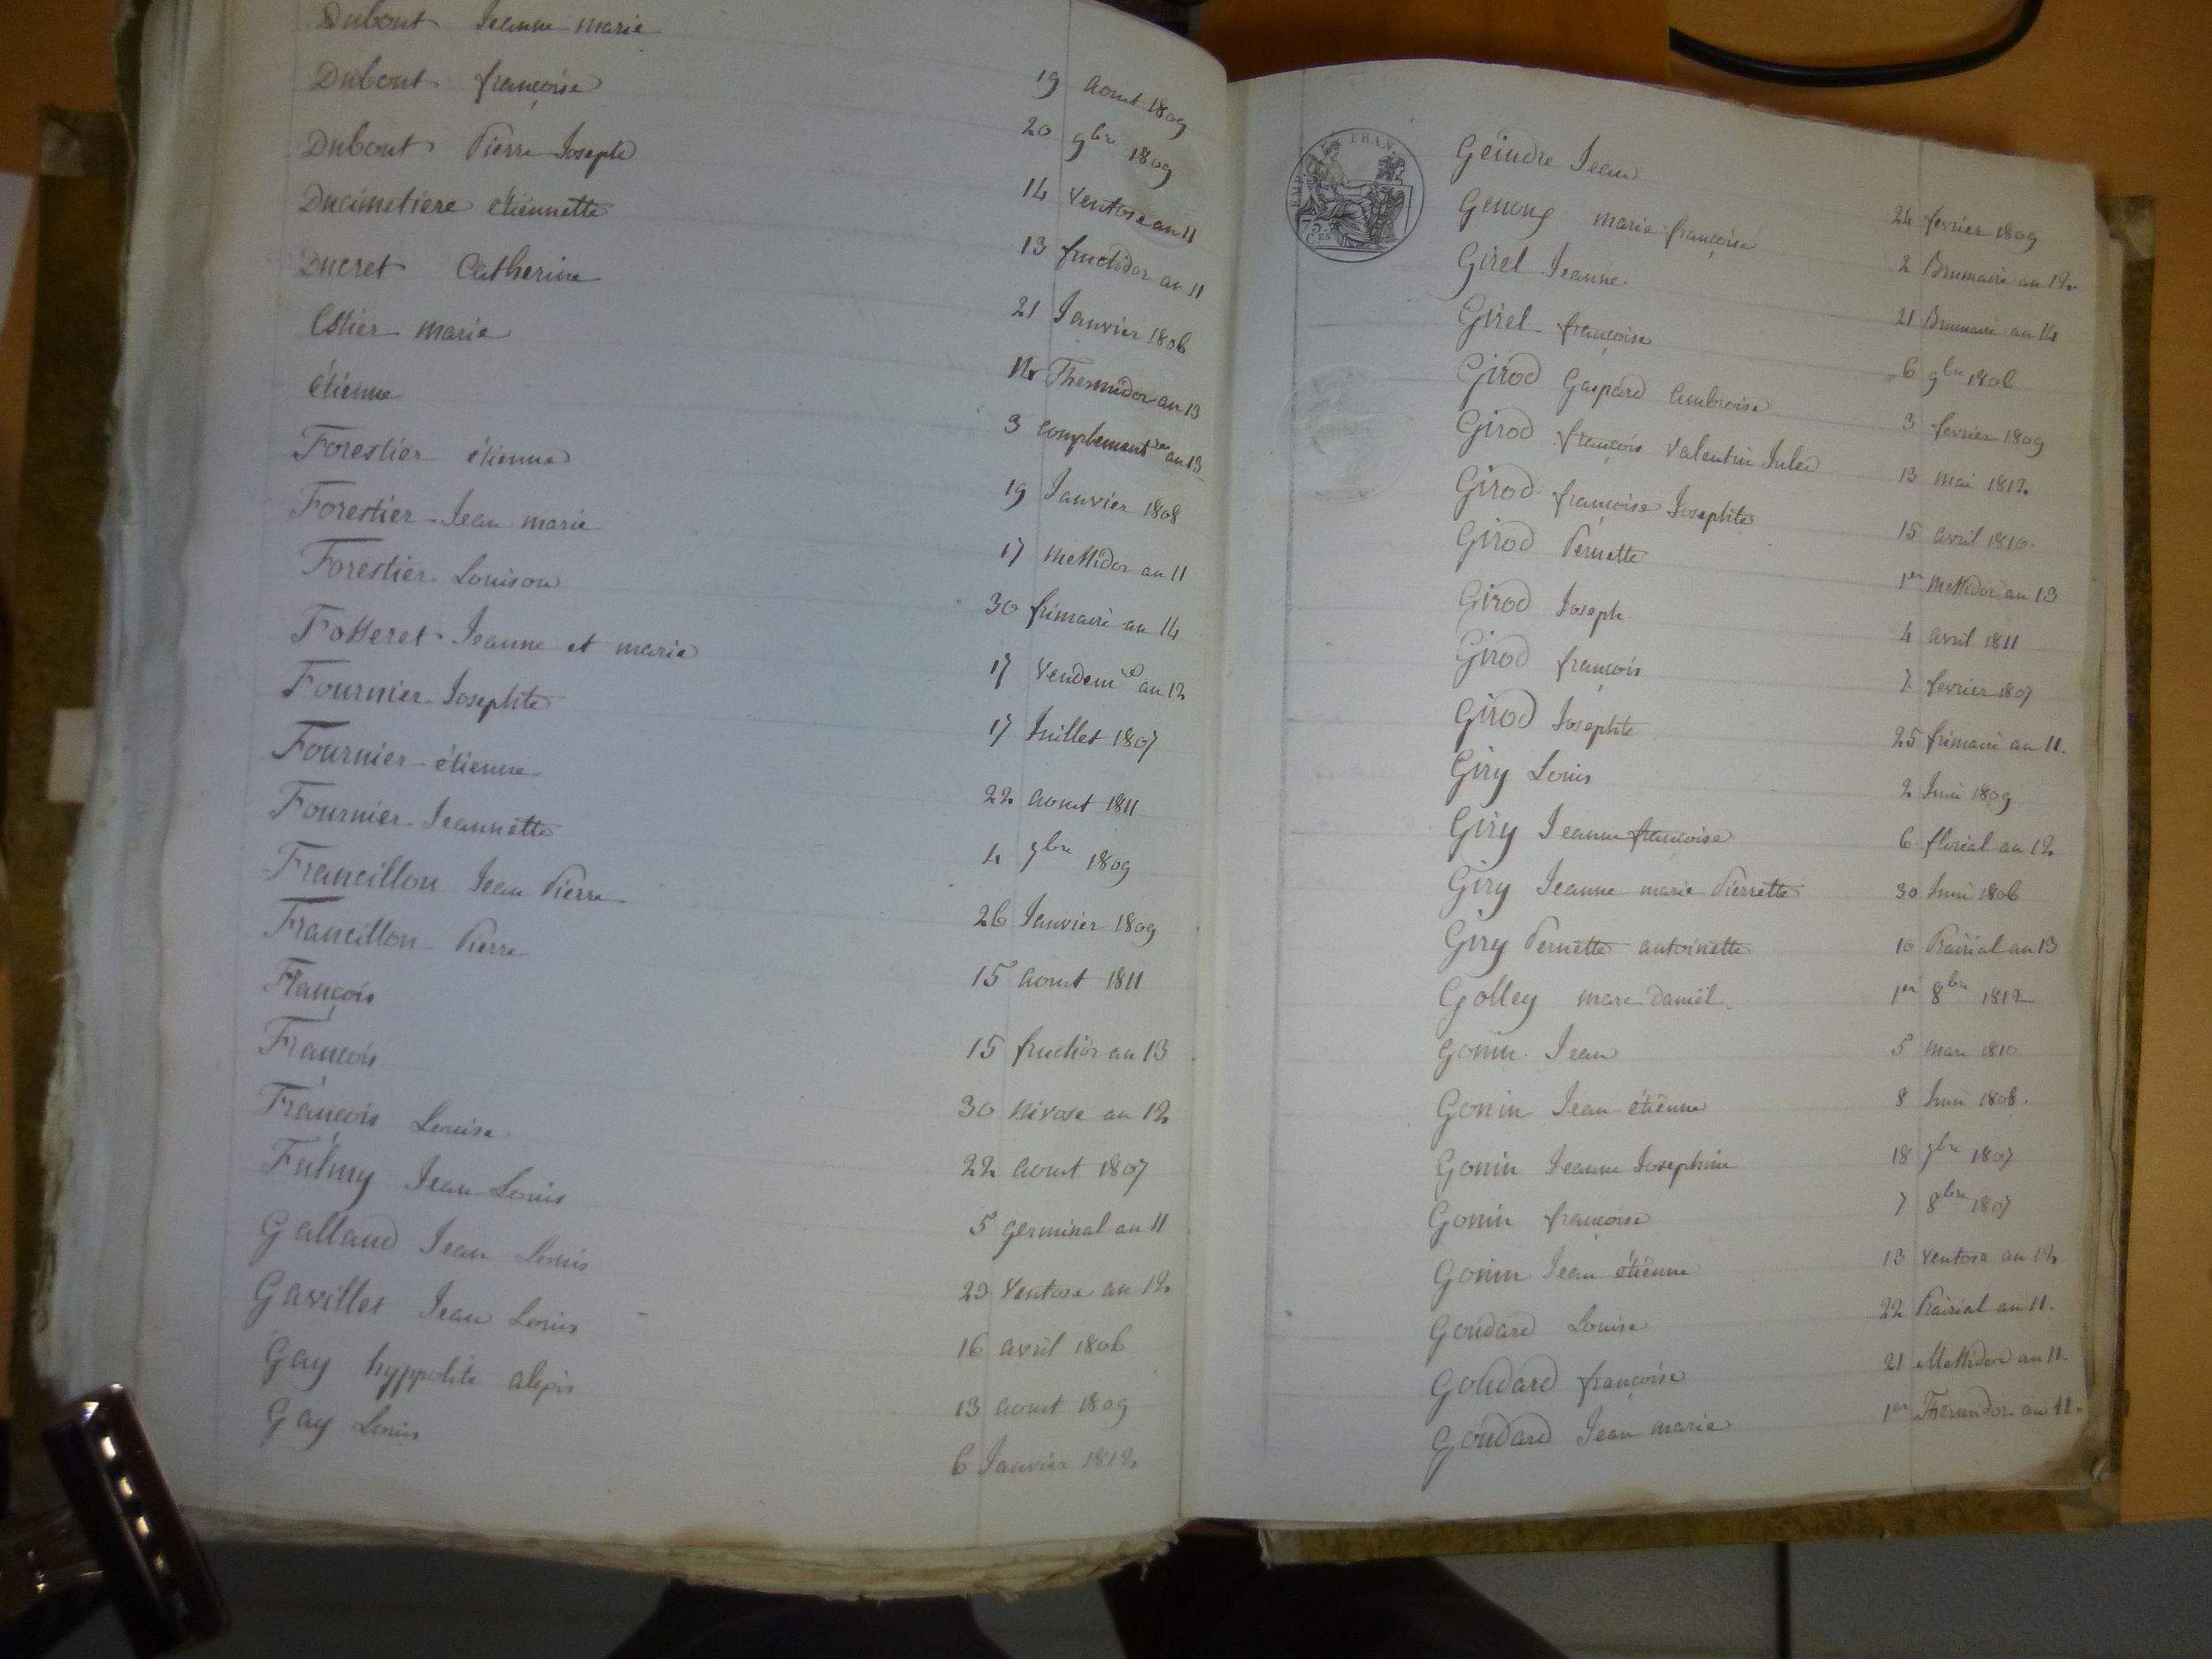 Dubout Jeanne marie 19 aout 1809
Dubout françoise 20 9bre 1809
Dubout Pierre Joseph 14 ventose an 11
Ducimetiere étiennette 13 fructidor an 11
Ducret Catherine 21 Janvier 1806
Estier marie 14 Thermidor an 13
étienne 3 complementres an 13
Forestier étienne 19 Janvier 1808
Forestier Jean marie 17 messidor an 11
Forestier Louison 30 frimaire an 14
Fosseret Jeanne et marie 17 vendemre an 12
Fournier Josephte 17 Juillet 1807
Fournier étienne 22 aout 1811
Fournier Jeannette 4 9bre 1809
Francillon Jean Pierre 26 Janvier 1809
Francillon Pierre 15 aout 1811
François 15 fructior an 13
François 30 nivose an 12
François Louise 22 aout 1807
Fulmy Jean Louis 5 germinal an 11
Galland Jean Louis 23 ventose an 12
Gavillet Jean Louis 16 avril 1806
Gay hyppolite alexis 13 aout 1809
Gay Louis 6 Janvier 1812
EMPIRE FRAN.
75 CES
Geindre Jean 24 fevrier 1809
Genoux marie françoise 2 Brumaire an 12
Girel Jeanne 21 Brumaire an 14
Girel françoise 6 9bre 1806
Girod Gaspard ambroise 3 fevrier 1809
Girod françois valentin Jules 13 mai 1812
Girod françoise Josephte 15 avril 1810
Girod Pernette 1er messidor an 13
Girod Joseph 4 avril 1811
Girod françois 7 fevrier 1807
Girod Josephte 25 frimaire an 11.
Giry Louis 2 Juin 1809
Giry Jeanne françoise 6 floréal an 12
Giry Jeanne marie Pierrette 30 Juin 1806
Giry Pernette antoinette 10 Prairial an 13
Golley marc daniel 1er 8bre 1812
Gonin Jean 5 mars 1810
Gonin Jean étiènne 8 Juin 1808.
Gonin Jeanne Josephine 18 9bre 1807
Gonin françoise 7 8bre 1807
Gonin Jean étiènne 13 ventose an 12
Goudard Louise 22 Prairial an 11.
Goudard françoise 21 Messidor an 11.
Goudard Jean marie 1er Thermidor an 11.